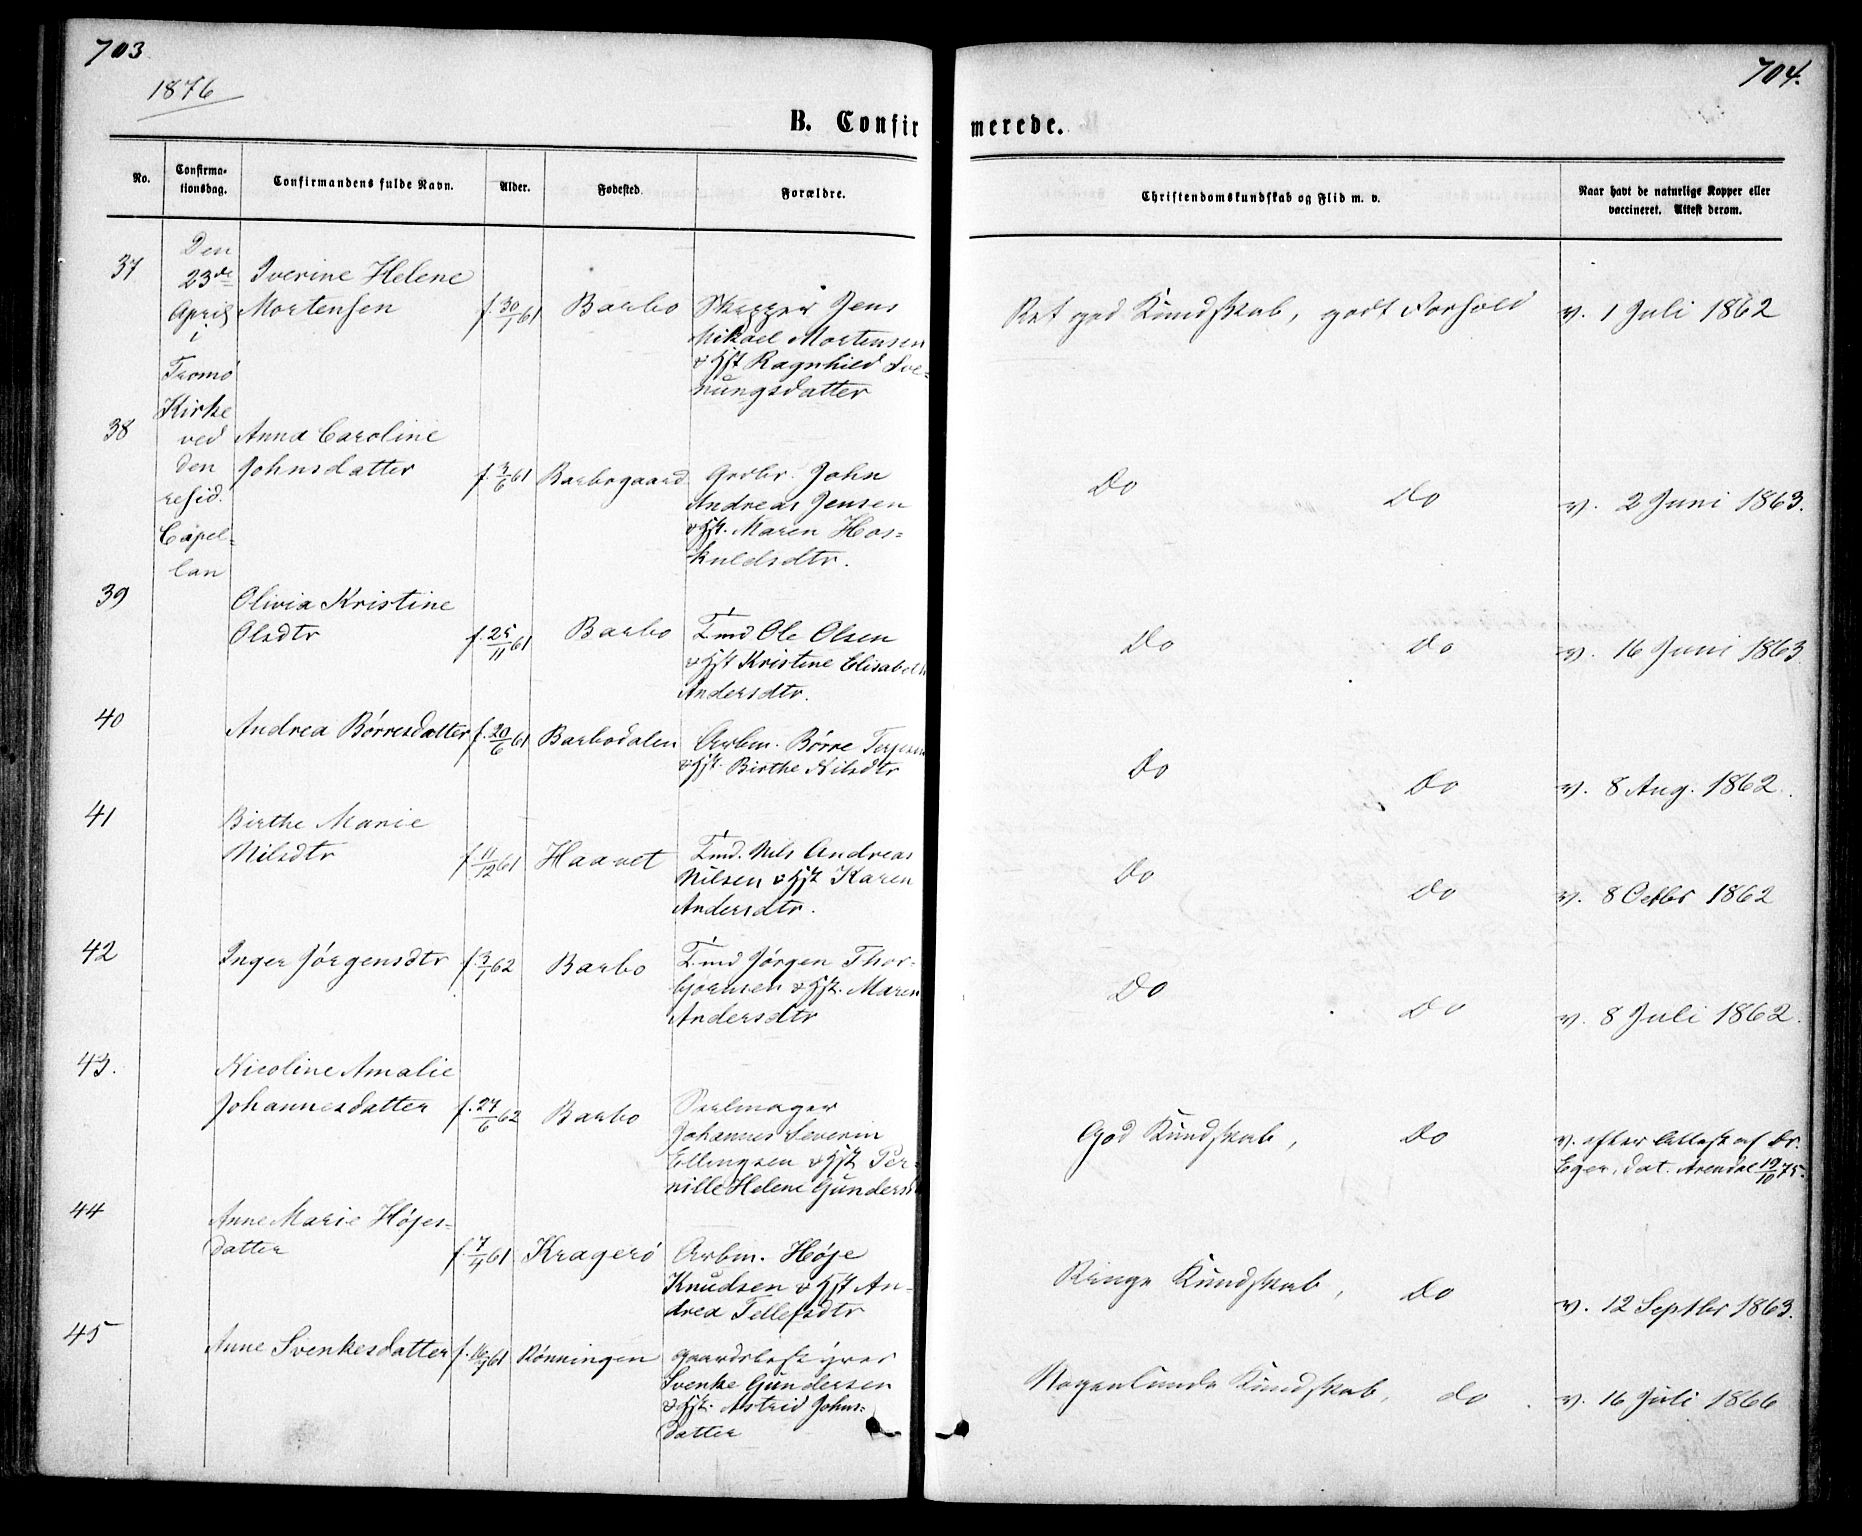 703
704.
1876
B. Confirmerede.
No.
Confirmationsdag.
Confirmandens fulde Navn.
Alder.
Fødested.
Forældre.
Christendomskundskab og Flid m. v.
Naar havt de naturlige Kopper eller
vaccineret. Attest derom.
Den
23de
April
i
Tromø
Kirke
ved
den
resid.
Capel-
lan
37
Iverine Helene
Mortensen
f. 30/1 61
Barbo
Skipper Jens
Mikael Mortensen
& Hst Ragnhild Sve-
nungsdatter
Ret god Kundskab, godt Forhold
v. 1 Juli 1862
38
Anna Caroline
Johnsdatter
f. 3/6 61
Barbogaard
Grdbr. John
Andreas Jensen
& Hst. Maren Hos-
kuldsdtr.
Do
Do
v. 2 Juni 1863.
39
Olivia Kristine
Olsdtr
f. 25/11 61
Barbo
Tmd Ole Olsen
& Hst Kristine Elisabeth
Andersdtr.
Do
Do
v. 16 Juni 1863
40
Andrea Børresdatter
f. 20/6 61
Barbodalen
Arbm. Børre Terjesen
& Hst. Birthe Nilsdtr
Do
Do
v. 8 Aug. 1862.
41
Birthe Marie
Nilsdtr
f. 11/12 61
Haavet
Tmd. Nils Andreas
Nilsen & Hst Karen
Andersdtr.
Do
Do
v. 8 Octbr 1862
42
Inger Jørgensdtr
f. 3/1 62
Barbo
Tmd Jørgen Thor-
bjørnsen & Hst. Maren
Andersdtr
Do
Do
v. 8 Juli 1862.
43.
Nicoline Amalie
Johannesdatter
f. 27/6 62
Barbo
Seilmager
Johannes Severin
Ellingsen & Hst Per-
nille Helene Gunders
God Kundskab,
Do
v. efter Attest af Dr.
Eger, dat. Arendal 19/10 75.
44
Anne Marie Højes-
datter
f. 7/4 61
Kragerø
Arbm. Høje
Knudsen & Hst An-
drea Tellefsdtr
Ringe Kundskab,
Do
v. 12 Septbr 1863.
45
Anne Svenkesdatter
f. 16/7 61
Rønningen
Gaardsbestyrer
Svenke Gundersen
& Hst. Astrid Johns-
datter
Nogenlunde Kundskab,
do
v. 16 Juli 1866